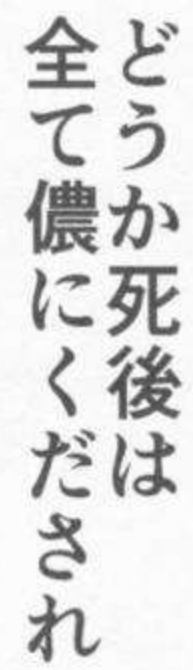 どうか死後は
全て儂にくだされ